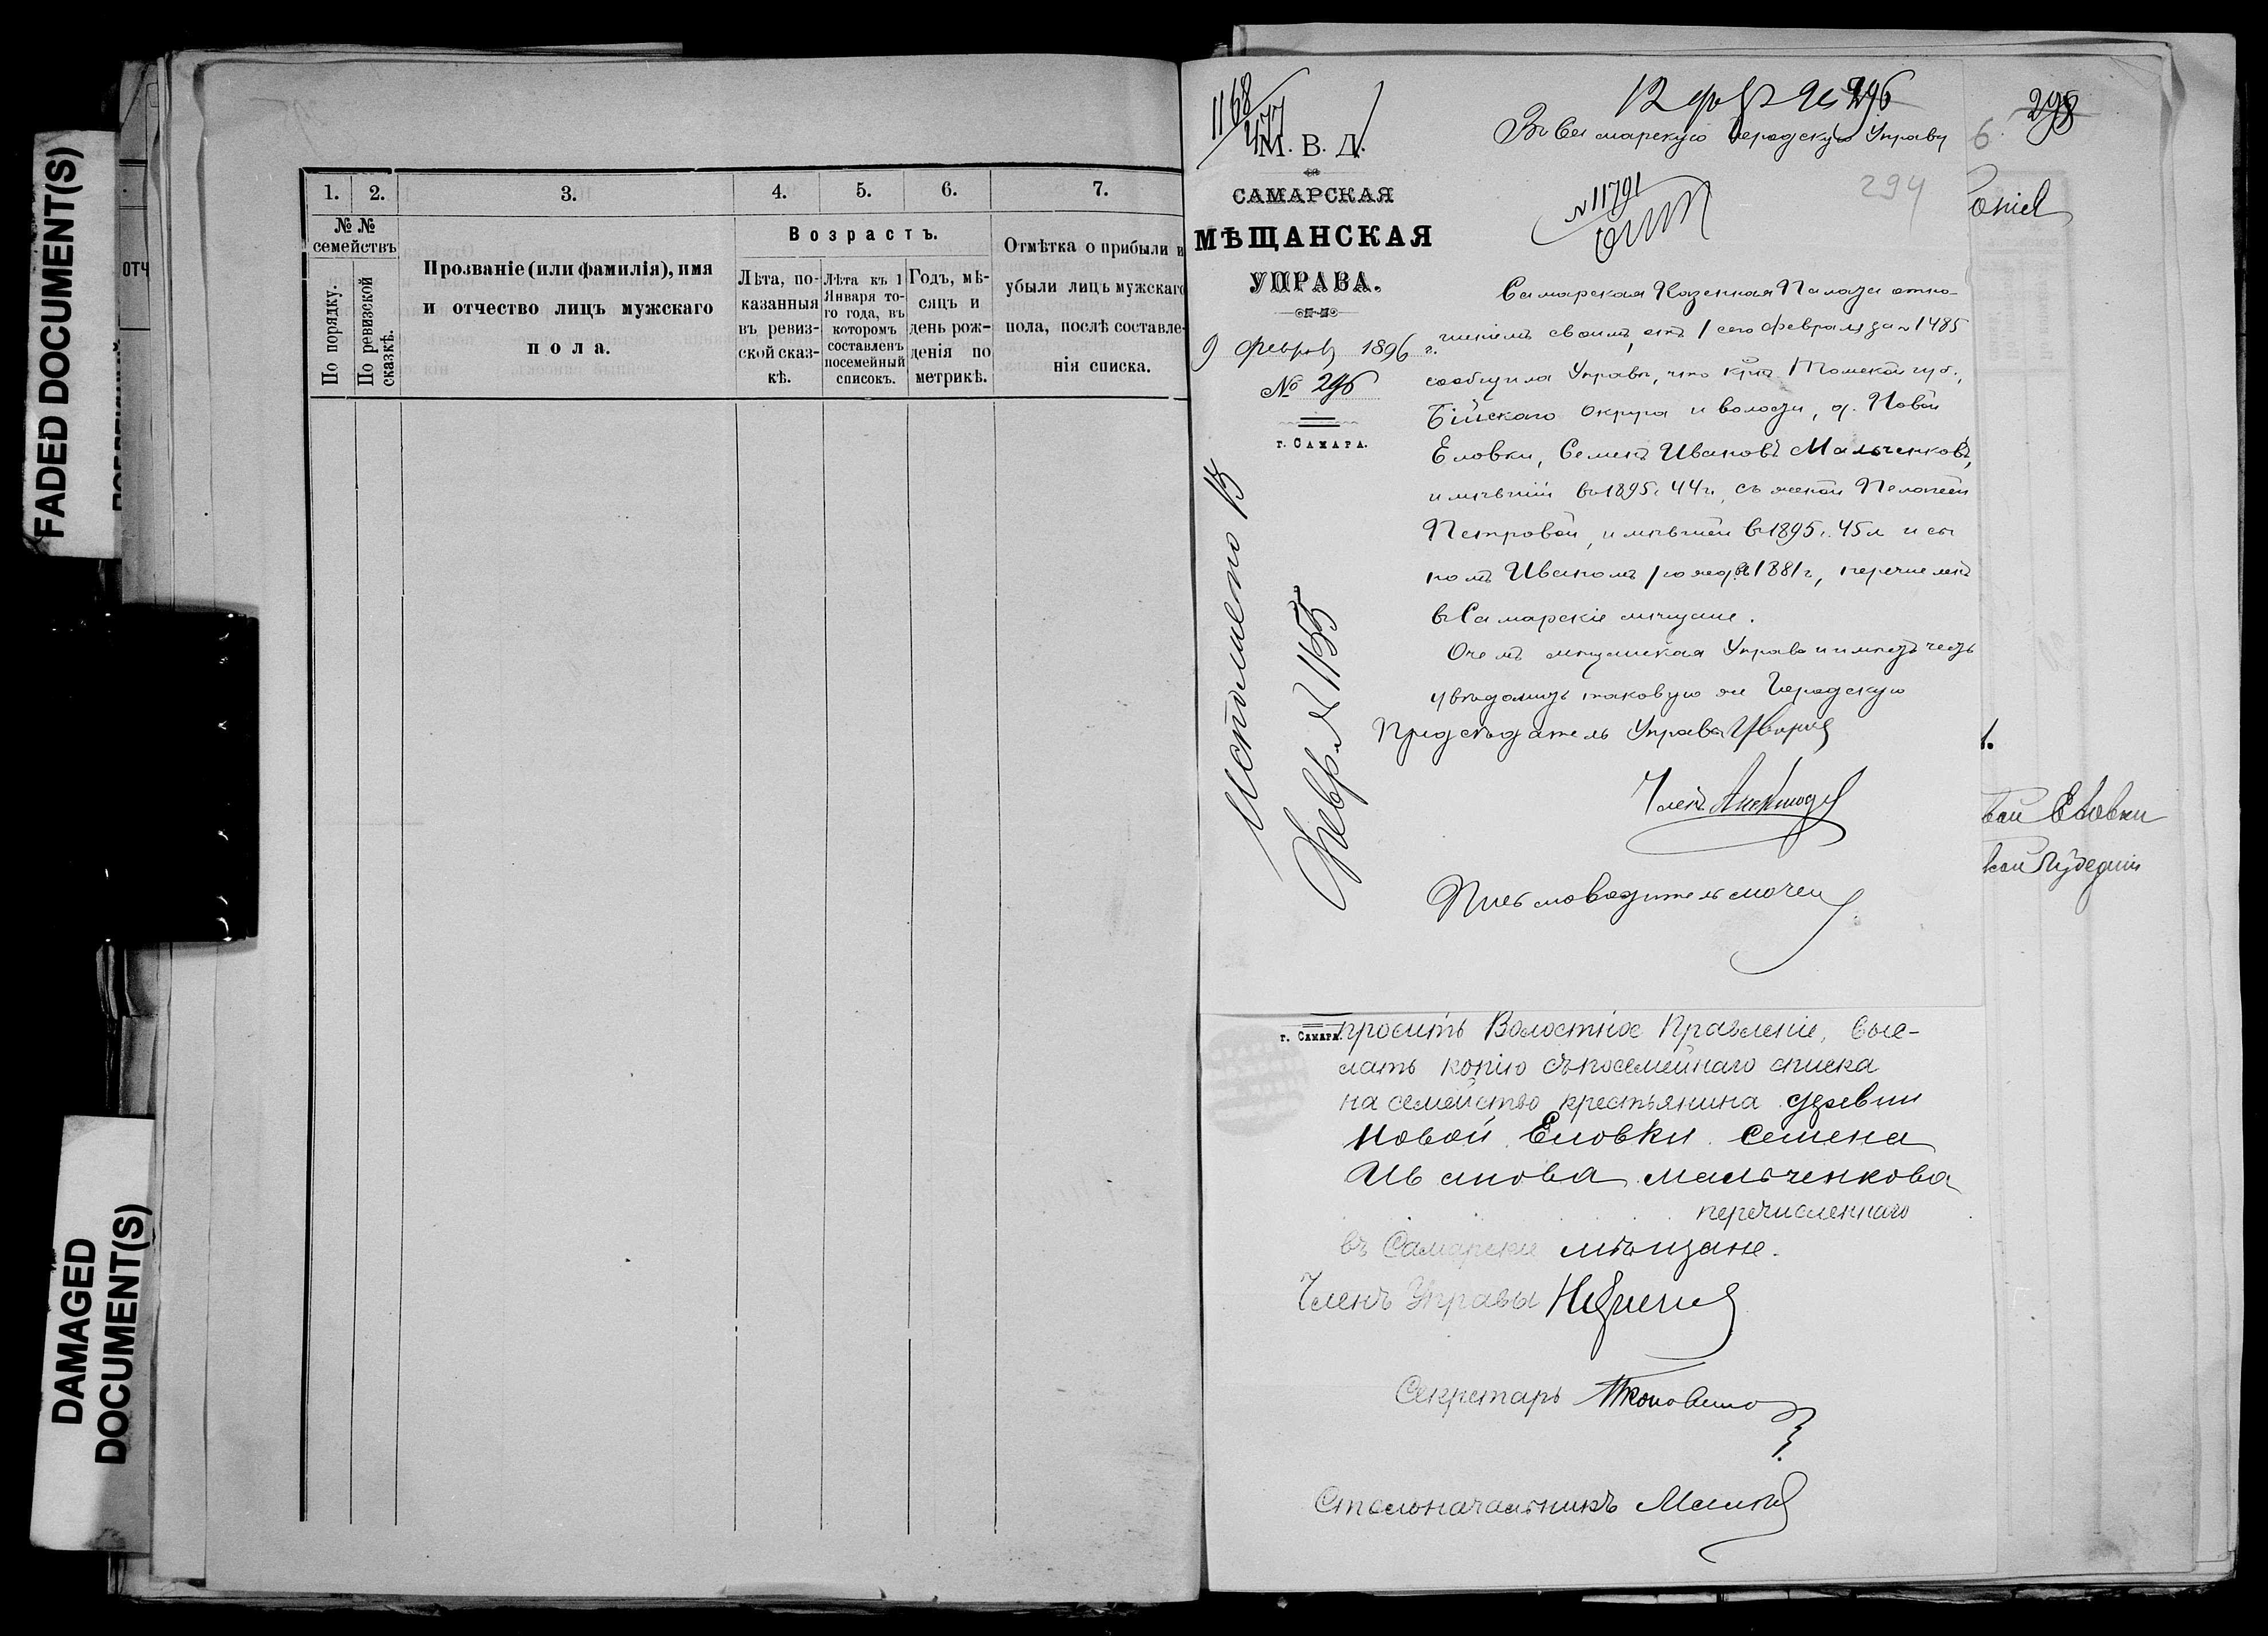 FADED DOCUMENT(S)
DAMAGED
DOCUMENT(S)
ОТЧ
1. 2. 3. 4. 5. 6. 7.
№ №
семействъ
По порядку.
По ревизской
сказкѣ.
Прозваніе (или фамилія), имя
и отчество лицъ мужскаго
пола.
Возрастъ.
Лѣта, по-
казанныя
въ ревиз-
ской сказ-
кѣ.
Лѣта къ 1
Января то-
го года, въ
которомъ
составленъ
посемейный
списокъ.
Годъ, мѣ-
сяцъ и
день рож-
денія по
метрикѣ.
Отмѣтка о прибыли и
убыли лицъ мужскаго
пола, послѣ составле-
нія списка.
1168
477
М. В. Д.
САМАРСКАЯ
МѢЩАНСКАЯ
УПРАВА.
9 Февраля 1896 г.
№ 296
г. САМАРА.
Исполнено 13
Февраля № 1155
12 фев 96
Въ Самарскую Городскую Управу
№ 11791
294
298
Самарская Казенная Палата отно-
шеніемъ своимъ, отъ 1 сего февраля за № 1485
сообщила Управѣ, что кр-нъ Томской губ.,
Бійскаго округа и волости, д. Новой
Еловки, Семенъ Ивановъ Мальченковъ,
имѣвшій въ 1895 г. 44 г., съ женой Пелагеей
Петровой, имѣвшей въ 1895 г. 45 л. и сы-
номъ Иваномъ, рожд. 1881 г., перечисленъ
въ Самарскіе мѣщане.
О чемъ мѣщанская Управа и имѣетъ честь
увѣдомить таковую же Городскую
Предсѣдатель Управы
Членъ
Письмоводитель
вой Еловки
г. САМАРА.
просить Волостное Правленіе, выс-
лать копію съ посемейнаго списка
на семейство крестьянина деревни
Новой Еловки Семена
Иванова Мальченкова
перечисленнаго
въ Самарскіе мѣщане.
Членъ Управы
Секретарь
Столоначальникъ